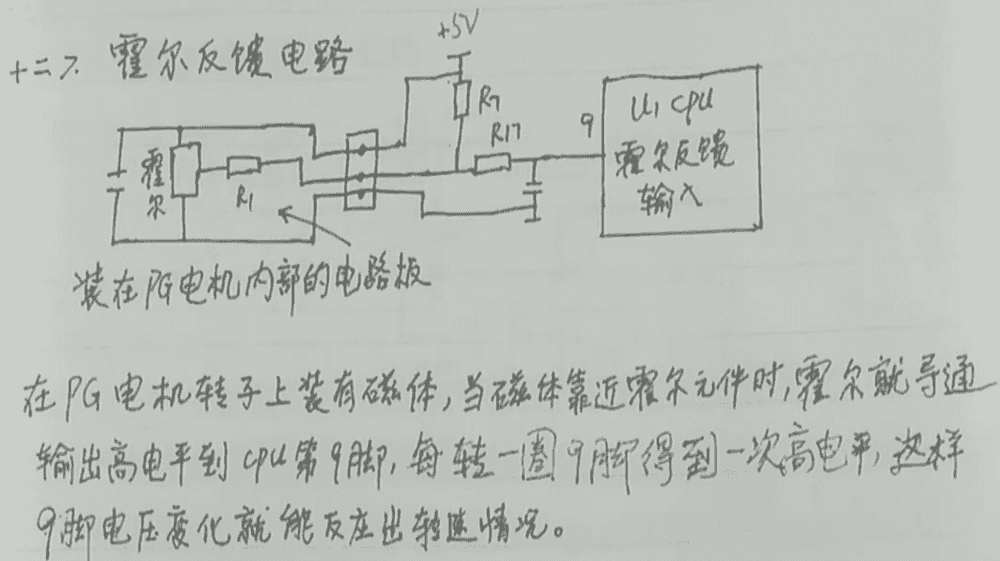 十二>. 霍尔反馈电路
+5V
R7
R17
9
U1 CPU
霍尔反馈
输入
霍尔
R1
装在PG电机内部的电路板
在PG电机转子上装有磁体,当磁体靠近霍尔元件时,霍尔就导通
输出高电平到CPU第9脚,每转一圈9脚得到一次高电平,这样
9脚电压变化就能反应出转速情况。